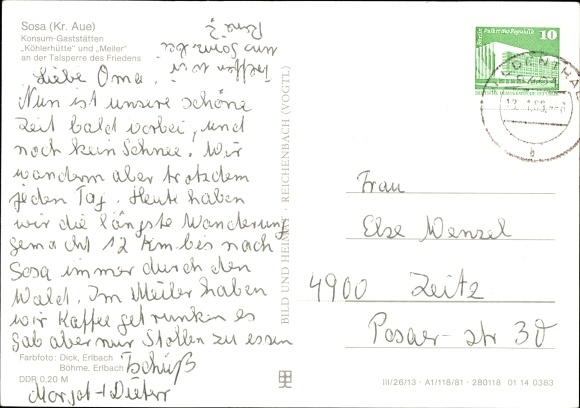 Sosa (Kr. Aue)
Konsum-Gaststätten
„Köhlerhütte" und „Meiler"
an der Talsperre des Friedens
Liebe Oma!
Nun ist unsere schöne
Zeit bald vorbei, und
noch kein Schnee. Wir
wandern aber trotzdem
jeden Tag. Heute haben
wir die längste Wanderung
gemacht 12 km bis nach
Sosa immer durch den
Wald. Im Meiler haben
wir Kaffee getrunken es
gab aber nur Stollen zu essen
Tschüß
Margot + Dieter
Farbfoto: Dick, Erlbach
Böhme, Erlbach
DDR 0,20 M
BILD UND HEIMAT · REICHENBACH (VOGTL)
Berlin, Palast der Republik
10
Frau
Else Wenzel
4900 Zeitz
Posaer-str 30
III/26/13 · A1/118/81 · 280118 01 14 0383